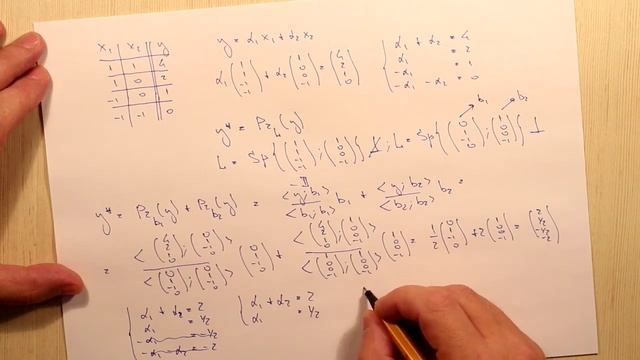 x₁ | x₂ || y
1 | 1 || 4
1 | 0 || 2
-1 | 0 || 1
-1 | -1 || 0
y = α₁x₁ + α₂x₂
α₁ (1 1 -1 -1) + α₂ (1 0 0 -1) = (4 2 1 0)
{ α₁ + α₂ = 4
α₁ = 2
-α₁ = 1
-α₁ - α₂ = 0
y* = Pr_L(y)
→ b₁ → b₂
L = Sp{(1 1 -1 -1); (1 0 0 -1)} ; L = Sp{(0 1 -1 0); (1 0 0 -1)} ⊥
y* = Pr_b₁(y) + Pr_b₂(y) = <y; b₁> / <b₁; b₁> b₁ + <y; b₂> / <b₂; b₂> b₂ =
= <(4 2 1 0); (0 1 -1 0)> / <(0 1 -1 0); (0 1 -1 0)> (0 1 -1 0) + <(4 2 1 0); (1 0 0 -1)> / <(1 0 0 -1); (1 0 0 -1)> (1 0 0 -1) = 1/2 (0 1 -1 0) + 2 (1 0 0 -1) = (2 1/2 -1/2 -2)
{ α₁ + α₂ = 2
α₁ = 1/2
-α₁ = -1/2
-α₁ - α₂ = -2
{ α₁ + α₂ = 2
α₁ = 1/2